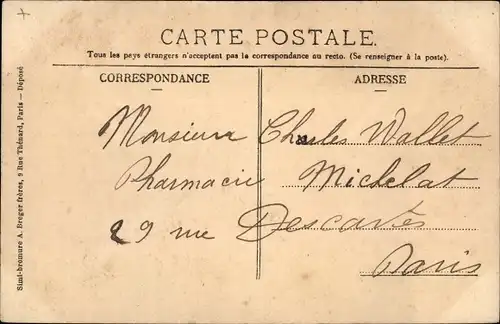 CARTE POSTALE.
Tous les pays étrangers n'acceptent pas la correspondance au recto. (Se renseigner à la poste).
CORRESPONDANCE
ADRESSE
Monsieur Charles Wallet
Pharmacie Michelat
29 rue Descartes
Paris
Simi-bromure A. Breger frères, 9 Rue Thénard, Paris — Déposé